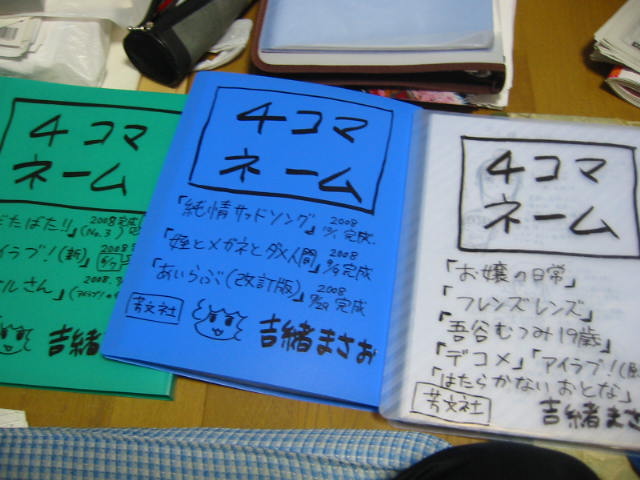 4コマ
ネーム
たばた!!」 2008 完成
(No.3)
イラブ!(新)」
ルさん」
吉緒
4コマ
ネーム
「純情サッドソング」 2008 完成.
「姪とメガネとダメ人間」 2008 完成
「あいらぶ(改訂版)」 2008 8/29 完成
芳文社
吉緒まさお
4コマ
ネーム
「お嬢の日常」
「フレンズレンズ」
「吾谷むつみ19歳」
「デコメ」「アイラブ!(
「はたらかないおとな」
芳文社
吉緒まさ